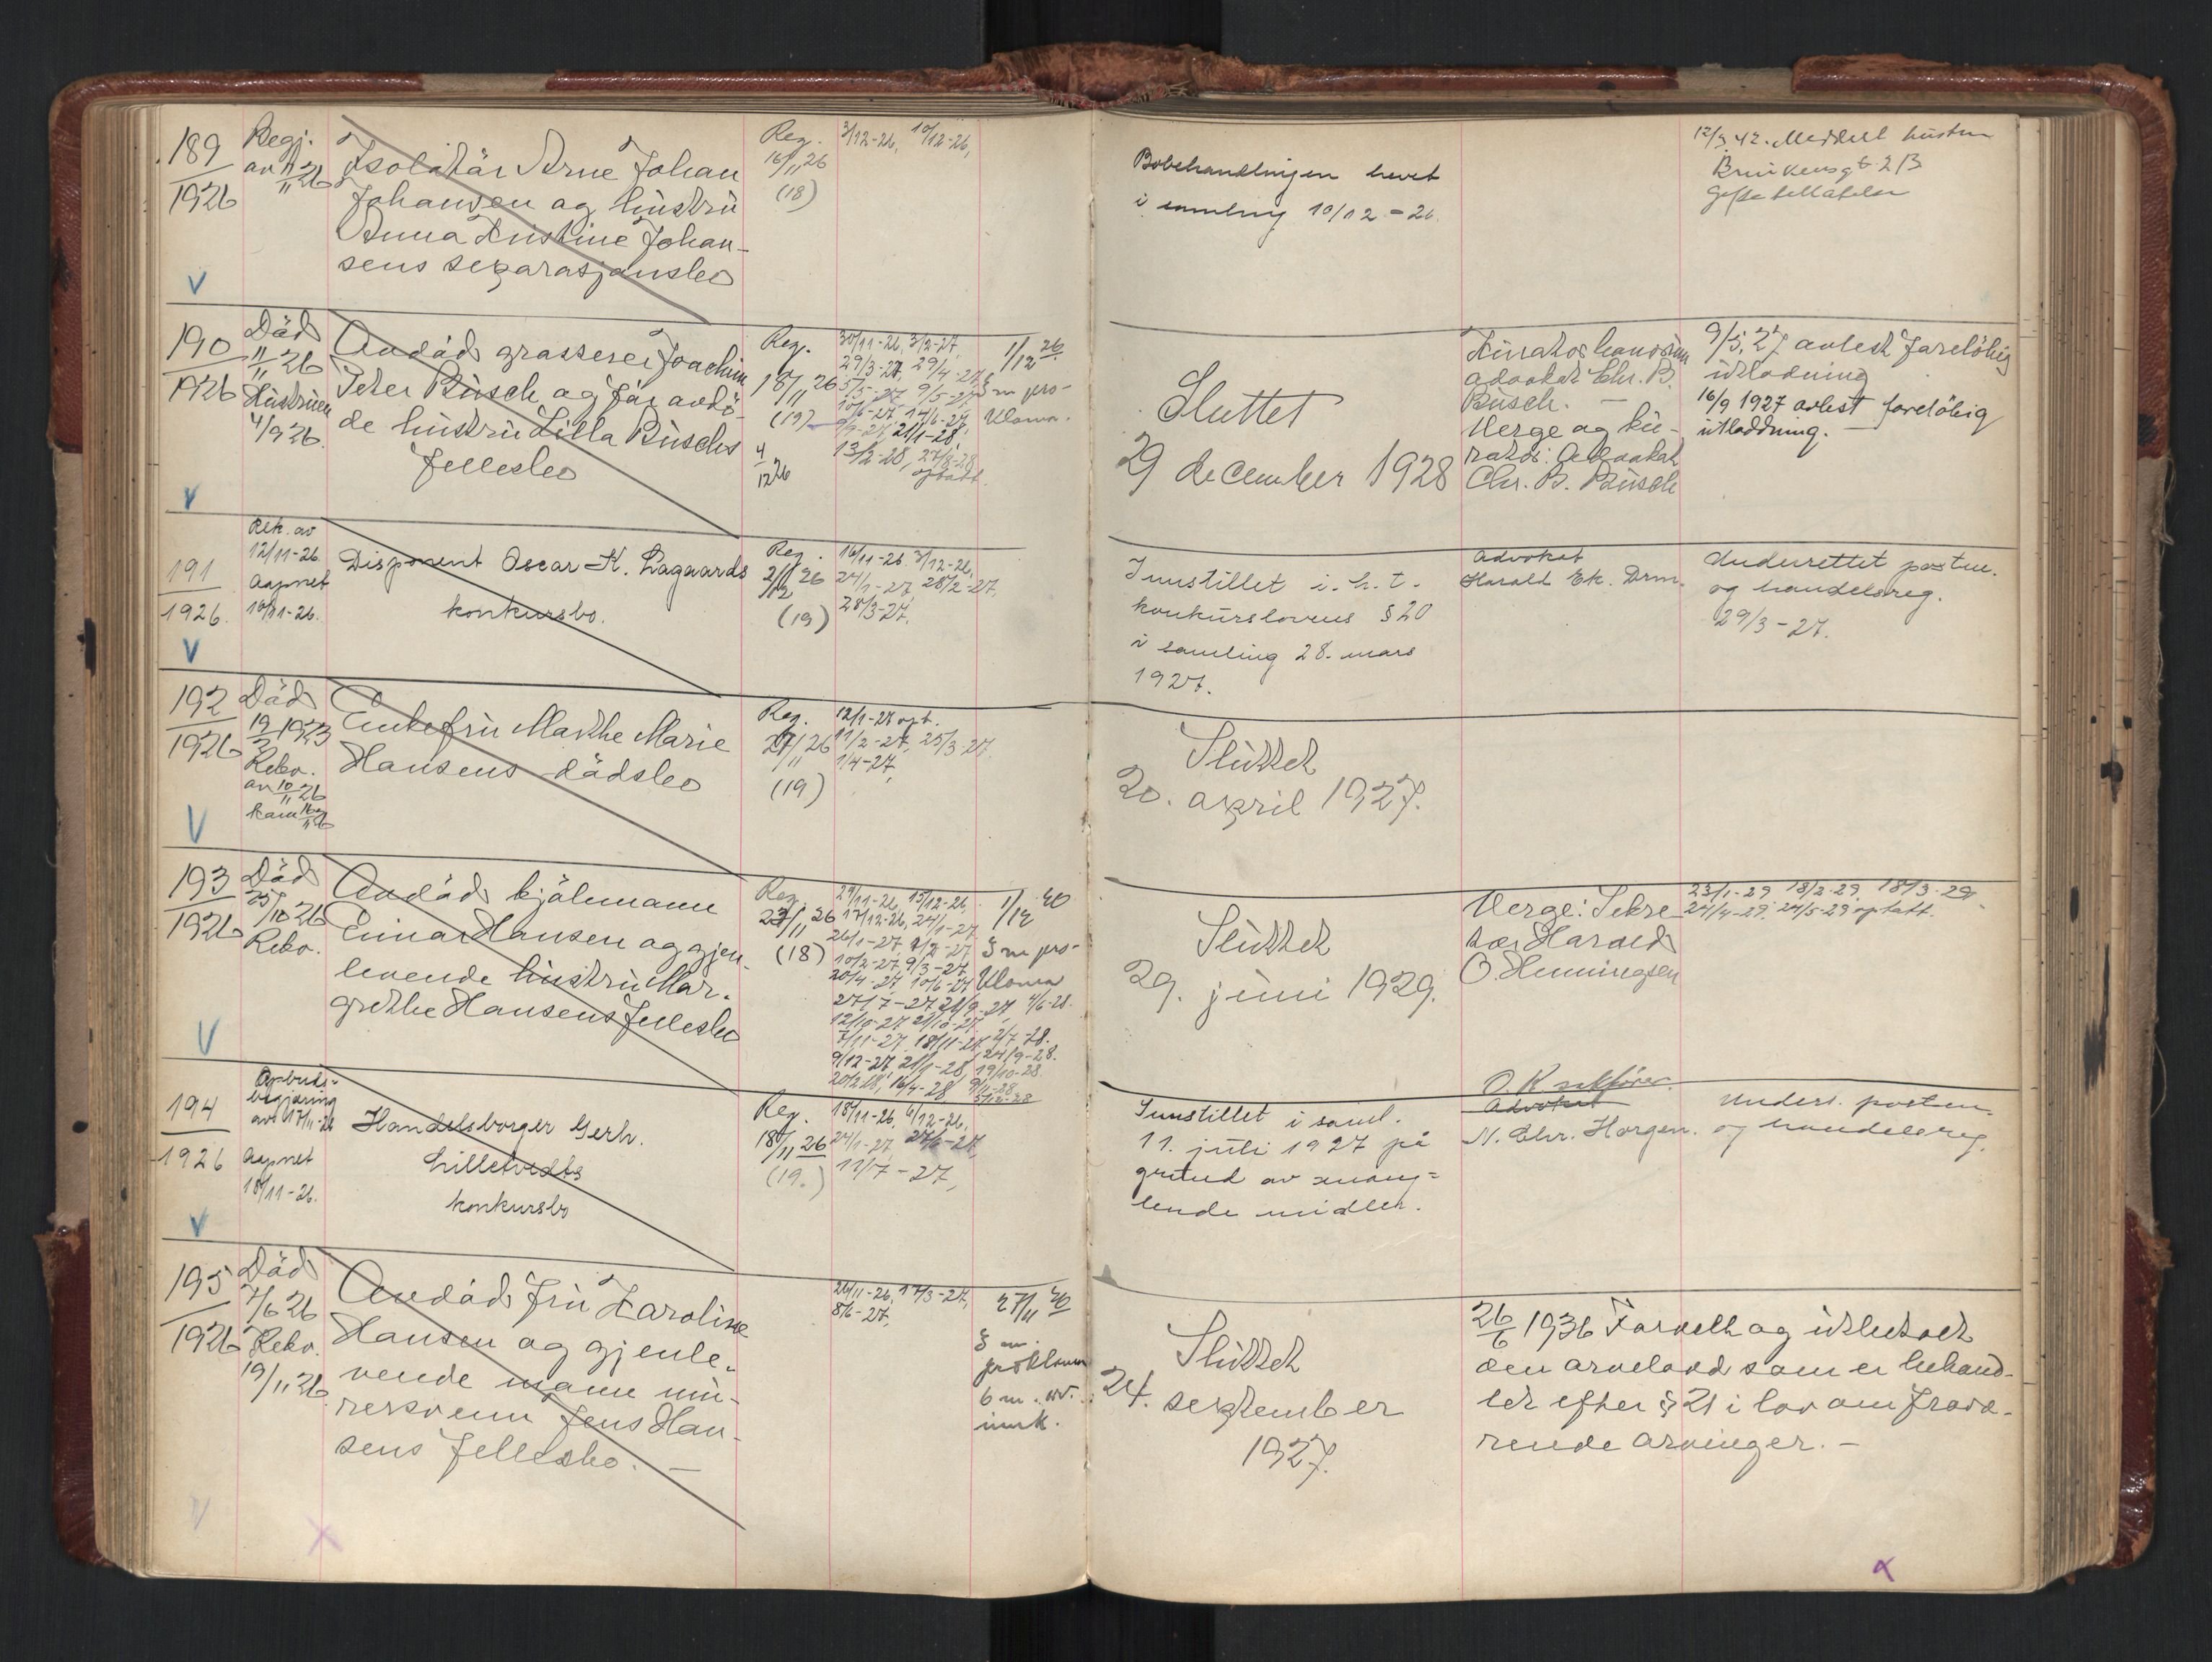 189
1926
Regj.
av 11/11 26
Isolatör Arne Johan
Johansen og hustru
Anna Kristine Johan-
sens separasjonsbo
Reg.
16/11 26
(18)
3/12-26, 10/12-26,
Bobehandlingen hevet
i samling 10/12-26.
12/3 42. Meddelt hustru
190
1926
Död
11/11 26
Hustruen
4/9 26.
Avdöd grosserer Joachim
Peter Büsch og før avdö-
de hustru Lilla Büschs
fellesbo
Reg.
18/11 26
(19)
4/12 26
30/11-26, 3/2-27,
29/3-27, 29/4-27,
5/5-27, 9/5-27,
10/6-27, 14/6-27,
9/9-27, 21/1-28,
13/2-28, 27/8-28
optatt.
1/12 26
3 m pro-
klama.
Sluttet
29 december 1928
advokat Chr. B.
Büsch. —
Verge og ku-
rator: Advokat
Chr. B. Büsch
9/5.27 avlest foreløbig
utlodning
16/9 1927 avlest foreløbig
utloddning.
191
1926.
Rek. av
12/11-26.
Aapnet
16/11-26.
Disponent Oscar K. Lagaards
konkursbo.
Reg.
2/12 26
(19)
16/11-26. 3/12-26,
24/1-27, 28/2-27,
28/3-27.
Innstillet i. h. t.
konkurslovens § 20
i samling 28. mars
1927.
Advokat
Harald Ek. Drm.
Underrettet postm.
og handelsreg.
29/3-27.
192
1926
Död
19/2 1923
Rekv.
av 10/11 26
kom 16/11 26
Enkefru Marthe Marie
Hansens dödsbo
Reg.
27/11 26
(19)
12/1-27 opt.
11/2-27, 25/3-27
1/4-27,
Sluttet
20. april 1927.
193
1926
Död
25/10 26
Rekv.
Avdöd kjölmann
Einar Hansen og gjen-
levende hustru Mar-
grethe Hansens fellesbo
Reg.
23/11 26
(18)
29/11-26, 13/12-26,
17/12-26, 24/1-27,
26/1-27, 2/2-27
10/2-27, 9/3-27,
20/4-27, 10/6-27
27/7-27, 21/9-27, 4/6-28.
12/10-27, 21/10-27,
7/11-27, 18/11-27, 2/7-28.
9/12-27, 21/1-28, 24/9-28.
20/2-28, 16/4-28, 19/10-28.
1/12 40
3 m pro-
klama
Sluttet
29. juni 1929.
Verge: Sekre-
tær Harald
O. Henningsen
23/1-29, 18/2-29, 18/3-29,
24/4-29, 24/5-29 optatt.
194
1926
Opbuds-
begjæring
av 17/11-26
Aapnet
18/11-26.
Handelsborger Gerh.
Lilletvedts
konkursbo
Reg.
18/11 26
(19.)
18/11-26, 6/12-26,
24/1-27, 27/6-27,
11/7-27,
Innstillet i saml.
11. juli 1927 på
grund av mang-
lende midler.
O. R sakfører.
Advokat
N. Chr. Horgen.
Underr. postm.
og handelsreg.
195
1926
Död
7/6 26
Rekv.
19/11 26.
Avdöd fru Karoline
Hansen og gjenle-
vende mann mu-
rersvenn Jens Han-
sens fellesbo. —
26/11-26, 17/3-27,
8/6-27,
27/11 40
3 m.
proklama
6 m. av.
innk.
Sluttet
24. september
1927.
26/6 1936 Forvelt og utbetalt
den arvelodd som er behand-
let efter § 21 i lov om fravæ-
rende arvinger. —